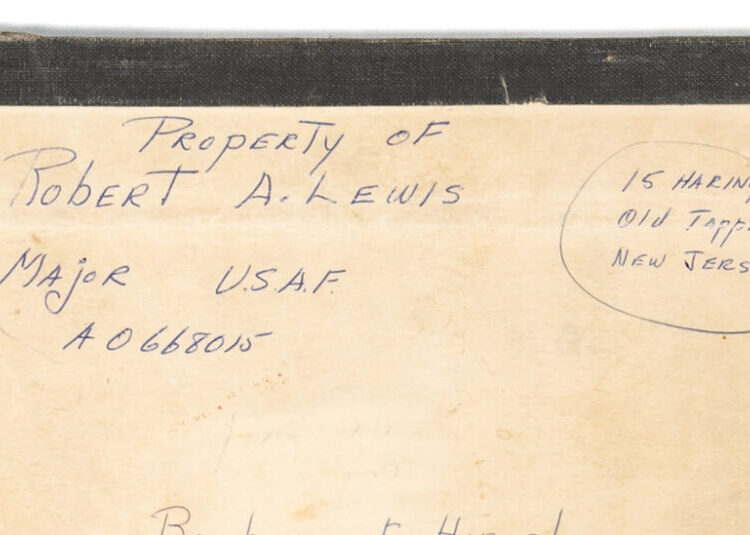 Property of
Robert A. Lewis
Major U.S.A.F.
AO668015
15 Harin
Old Tapp
New Jers